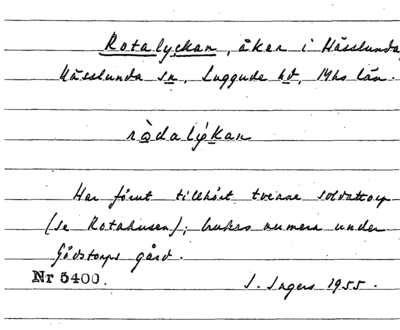 Rotalyckan, åker i Hässlunda,
Hässlunda sn, Luggude hd, Mhs län.
ròdalýkan
Har förut tillhört tvenne soldattorp
(se Rotahusen); brukas numera under
Gödstorps gård.
Nr 5400. J. Ingers 1955.